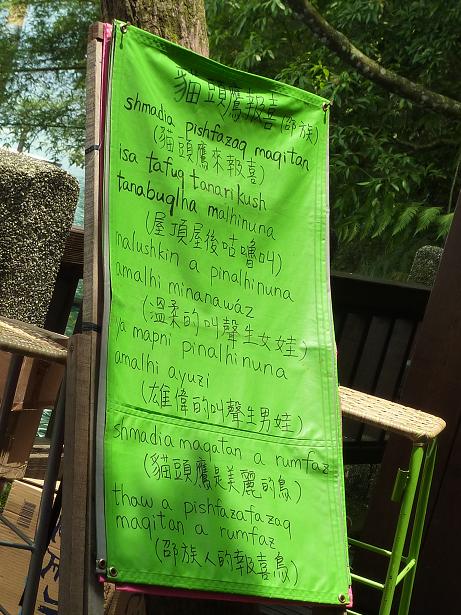 貓頭鷹報喜(邵族)
shmadia pishfazaq maqitan
(貓頭鷹來報喜)
isa tafuq tanarikush
tanabuqlha malhinuna
(屋頂屋後咕嚕叫)
malushkin a pinalhinuna
amalhi minanawáz
(溫柔的叫聲生女娃)
ya mapni pinalhinuna
amalhi ayuzi
(雄偉的叫聲生男娃)
shmadia magatan a rumfaz
(貓頭鷹是美麗的鳥)
thaw a pishfazafazaq
maqitan a rumfaz
(邵族人的報喜鳥)